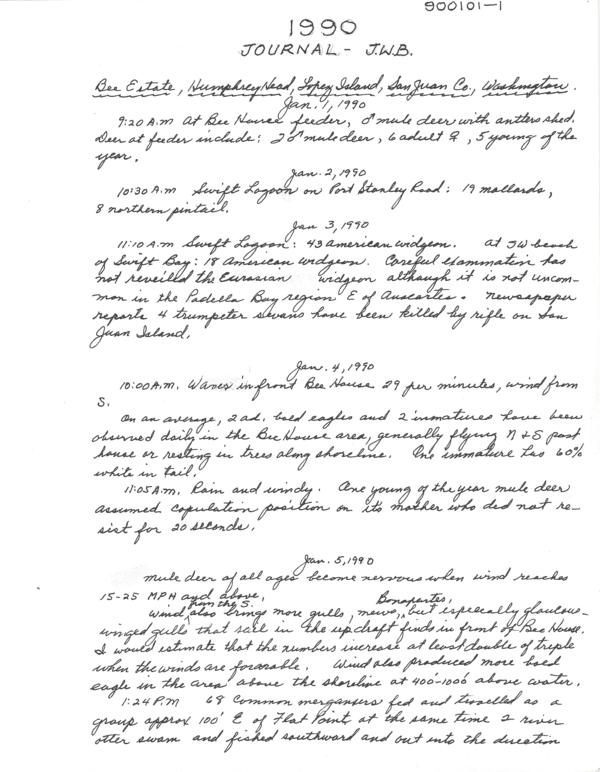 900101-1
1990
JOURNAL - J.W.B.
Bee Estate, Humphrey Head, Lopez Island, San Juan Co., Washington.
Jan. 1, 1990
9:20 A.M At Bee House feeder, ♂ mule deer with antlers shed.
Deer at feeder include: 2 ♂ mule deer, 6 adult ♀, 5 young of the
year.
Jan. 2, 1990
10:30 A.M Swift Lagoon on Port Stanley Road: 19 mallards,
8 northern pintail.
Jan 3, 1990
11:10 A.M Swift Lagoon: 43 American widgeon. At JW beach
of Swift Bay: 18 American widgeon. Careful examination has
not reveiled the Eurasian widgeon although it is not uncom-
mon in the Padella Bay region E of Anacortes. Newsapaper
reports 4 trumpeter swans have been killed by rifle on San
Juan Island.
Jan. 4, 1990
10:00 A.M. Waves in front Bee House 29 per minutes, wind from
S.
On an average, 2 ad. bald eagles and 2 immatures have been
observed daily in the Bee House area, generally flying N & S past
house or resting in trees along shoreline. One immature has 60%
white in tail.
11:05 A.M. Rain and windy. One young of the year mule deer
assumed copulation position on its mother who did not re-
sist for 20 seconds.
Jan. 5, 1990
Mule deer of all ages become nervous when wind reaches
15-25 MPH and above,
Wind from the S. also brings more gulls, mews, Bonapartes, but especially glaucous-
winged gulls that sail in the updraft finds in front of Bee House.
I would estimate that the numbers increase at least double or triple
when the winds are favorable. Wind also produced more bald
eagle in the area above the shoreline at 400'-1000' above water.
1:24 P.M 68 Common mergansers fed and travelled as a
group approx 100' E of Flat Point at the same time 2 river
otter swam and fished southward and out into the direction